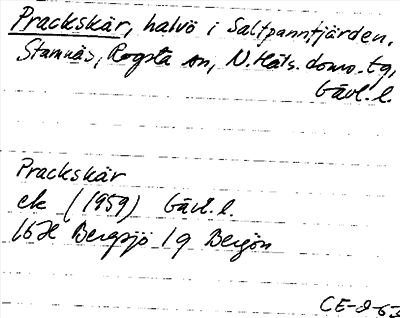 Prackskär, halvö i Saltpannfjärden,
Stamnäs, Rogsta sn, N. Häls. doms. tg,
Gävl. l.
Prackskär
ek (1959) Gävl. l.
16H Bergsjö 1g Bergön